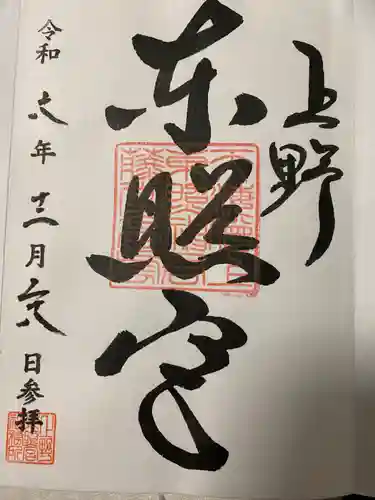 上野
東照宮
令和六年十二月六日参拝